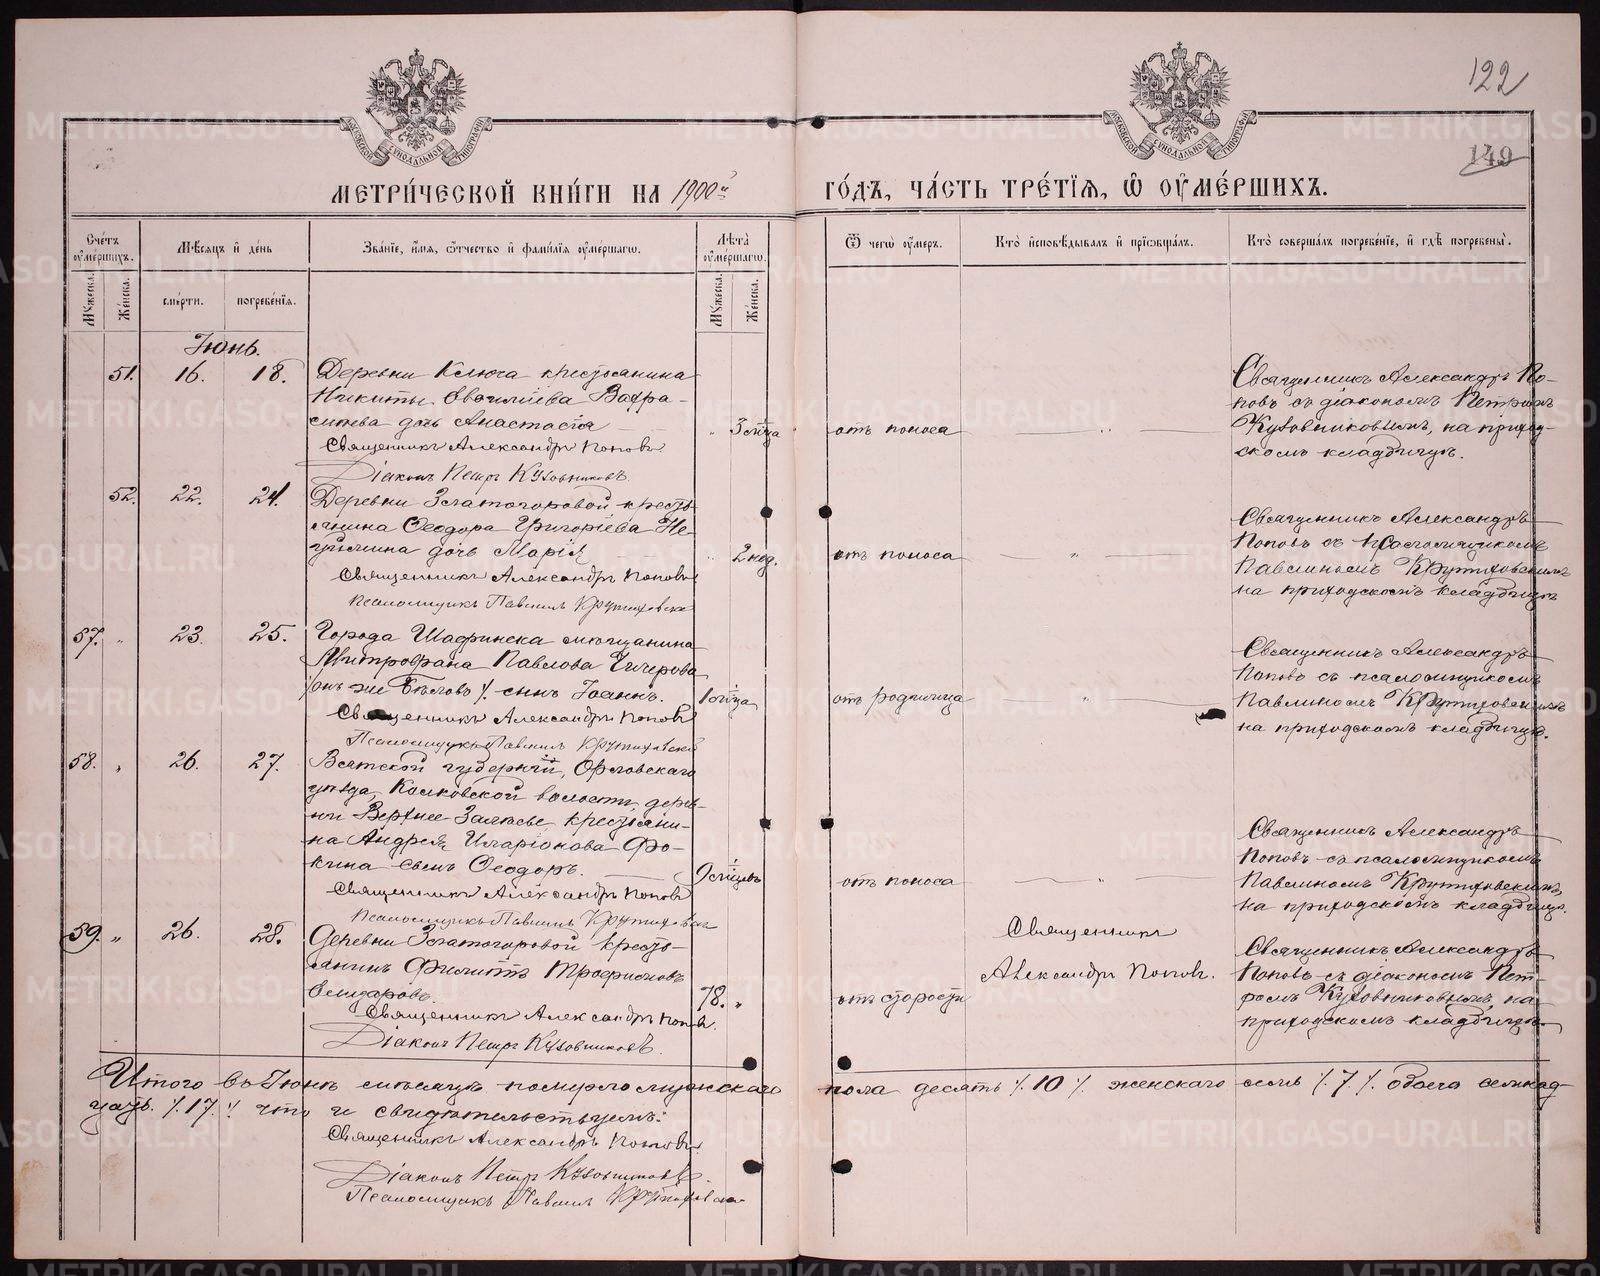 122
149
МЕТРИ́ЧЕСКОЙ КНИ́ГИ НА 1900й ГО́ДЪ, ЧА́СТЬ ТРЕ́ТІѦ, Ѽ ОУ҆МЕ́РШИХЪ.
Сче́тъ оумершихъ.
Мужеска.
Женска.
Мѣсяцъ и де́нь
сме́рти.
погребе́нїѧ.
Зва́нїе, и҆мѧ, ѻ҆тчество и фами́лїѧ оу҆ме́ршагѡ.
Лѣта̀ оу҆ме́ршагѡ.
Мужеска.
Женска.
Ѿ чегѡ̀ оу҆меръ.
Кто̀ и҆сповѣ́дывалъ и҆ прїѡбща́лъ.
Кто̀ соверша́лъ погребе́нїе, и҆ гдѣ̀ погребены̀.
Іюнь.
51. 16. 18. Деревни Ключа крестьянина
Никиты Ѳвоилиева Вахра-
сина дочь Анастасія " 3 м̃ца отъ поноса "
Священникъ Александръ Поповъ
Діаконъ Петръ Кузовниковъ.
Священникъ Александръ По-
повъ съ діакономъ Петромъ
Кузовниковымъ, на приход-
скомъ кладбищѣ.
52. 22. 24. Деревни Златогоровой кресть-
янина Ѳеодора Григоріева Не-
дочь Марія " 2 нед. отъ поноса "
Священникъ Александръ Поповъ
Псаломщикъ Павлинъ Крутиховскій
Священникъ Александръ
Поповъ съ псаломщикомъ
Павлиномъ Крутиховскимъ
на приходскомъ кладбищѣ
57. " 23. 25. Города Шадринска мѣщанина
Митрофана Павлова Чичерова
/онъ же Бѣловъ/. сынъ Іоаннъ. 1 м̃ца отъ родимца "
Священникъ Александръ Поповъ
Псаломщикъ Павлинъ Крутиховскій
Священникъ Александръ
Поповъ съ псаломщикомъ
Павлиномъ Крутиховскимъ
на приходскомъ кладбищѣ.
58. " 26. 27. Вятской губерніи, Орловскаго
уѣзда, Колковской волости, дерев-
ни Верхнее Залѣсье крестьяни-
на Андрея Иларіонова Фо-
кина сынъ Ѳеодоръ. 9 м̃цевъ отъ поноса "
Священникъ Александръ Поповъ
Псаломщикъ Павлинъ Крутиховскій
Священникъ Александръ
Поповъ съ псаломщикомъ
Павлиномъ Крутиховскимъ,
на приходскомъ кладбищѣ.
59. " 26. 28. Деревни Златогоровой кресть-
янинъ Филиппъ Трофимовъ
78. " отъ старости
Священникъ Александръ Поповъ.
Діаконъ Петръ Кузовниковъ.
Священникъ
Александръ Поповъ.
Священникъ Александръ
Поповъ съ діакономъ Пет-
ромъ Кузовниковымъ, на
приходскомъ кладбищѣ.
Итого въ Іюнѣ мѣсяцѣ померло мужскаго пола десять /. 10 /. женскаго семь /. 7 /. обоего семнад-
цать. /. 17. /. что и свидѣтельствуемъ:
Священникъ Александръ Поповъ
Діаконъ Петръ Кузовниковъ.
Псаломщикъ Павлинъ Крутиховскій
METRIKI.GASO-URAL.RU